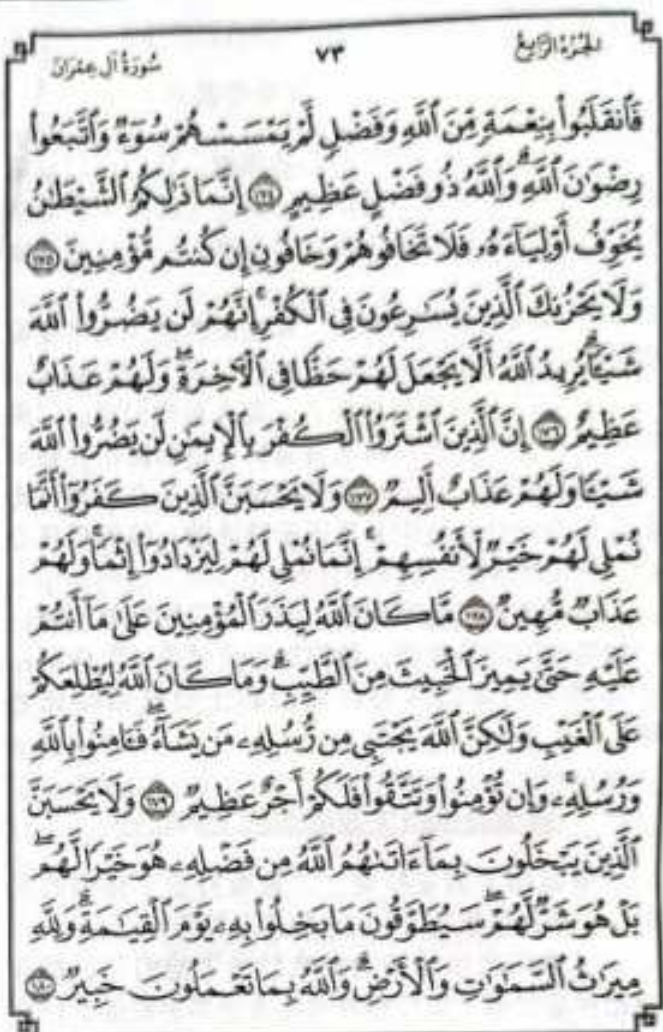 الجزء الرابع ٧٣ سورة آل عمران
فَٱنقَلَبُوا۟ بِنِعْمَةٍ مِّنَ ٱللَّهِ وَفَضْلٍ لَّمْ يَمْسَسْهُمْ سُوٓءٌ وَٱتَّبَعُوا۟
رِضْوَٰنَ ٱللَّهِ ۗ وَٱللَّهُ ذُو فَضْلٍ عَظِيمٍ ١٧٤ إِنَّمَا ذَٰلِكُمُ ٱلشَّيْطَٰنُ
يُخَوِّفُ أَوْلِيَآءَهُۥ فَلَا تَخَافُوهُمْ وَخَافُونِ إِن كُنتُم مُّؤْمِنِينَ ١٧٥
وَلَا يَحْزُنكَ ٱلَّذِينَ يُسَٰرِعُونَ فِى ٱلْكُفْرِ ۚ إِنَّهُمْ لَن يَضُرُّوا۟ ٱللَّهَ
شَيْـًٔا ۗ يُرِيدُ ٱللَّهُ أَلَّا يَجْعَلَ لَهُمْ حَظًّا فِى ٱلْـَٔاخِرَةِ ۖ وَلَهُمْ عَذَابٌ
عَظِيمٌ ١٧٦ إِنَّ ٱلَّذِينَ ٱشْتَرَوُا۟ ٱلْكُفْرَ بِٱلْإِيمَٰنِ لَن يَضُرُّوا۟ ٱللَّهَ
شَيْـًٔا وَلَهُمْ عَذَابٌ أَلِيمٌ ١٧٧ وَلَا يَحْسَبَنَّ ٱلَّذِينَ كَفَرُوٓا۟ أَنَّمَا
نُمْلِى لَهُمْ خَيْرٌ لِّأَنفُسِهِمْ ۚ إِنَّمَا نُمْلِى لَهُمْ لِيَزْدَادُوٓا۟ إِثْمًا ۚ وَلَهُمْ
عَذَابٌ مُّهِينٌ ١٧٨ مَّا كَانَ ٱللَّهُ لِيَذَرَ ٱلْمُؤْمِنِينَ عَلَىٰ مَآ أَنتُمْ
عَلَيْهِ حَتَّىٰ يَمِيزَ ٱلْخَبِيثَ مِنَ ٱلطَّيِّبِ ۗ وَمَا كَانَ ٱللَّهُ لِيُطْلِعَكُمْ
عَلَى ٱلْغَيْبِ وَلَٰكِنَّ ٱللَّهَ يَجْتَبِى مِن رُّسُلِهِۦ مَن يَشَآءُ ۖ فَـَٔامِنُوا۟ بِٱللَّهِ
وَرُسُلِهِۦ ۚ وَإِن تُؤْمِنُوا۟ وَتَتَّقُوا۟ فَلَكُمْ أَجْرٌ عَظِيمٌ ١٧٩ وَلَا يَحْسَبَنَّ
ٱلَّذِينَ يَبْخَلُونَ بِمَآ ءَاتَىٰهُمُ ٱللَّهُ مِن فَضْلِهِۦ هُوَ خَيْرًا لَّهُم ۖ
بَلْ هُوَ شَرٌّ لَّهُمْ ۖ سَيُطَوَّقُونَ مَا بَخِلُوا۟ بِهِۦ يَوْمَ ٱلْقِيَٰمَةِ ۗ وَلِلَّهِ
مِيرَٰثُ ٱلسَّمَٰوَٰتِ وَٱلْأَرْضِ ۗ وَٱللَّهُ بِمَا تَعْمَلُونَ خَبِيرٌ ١٨٠